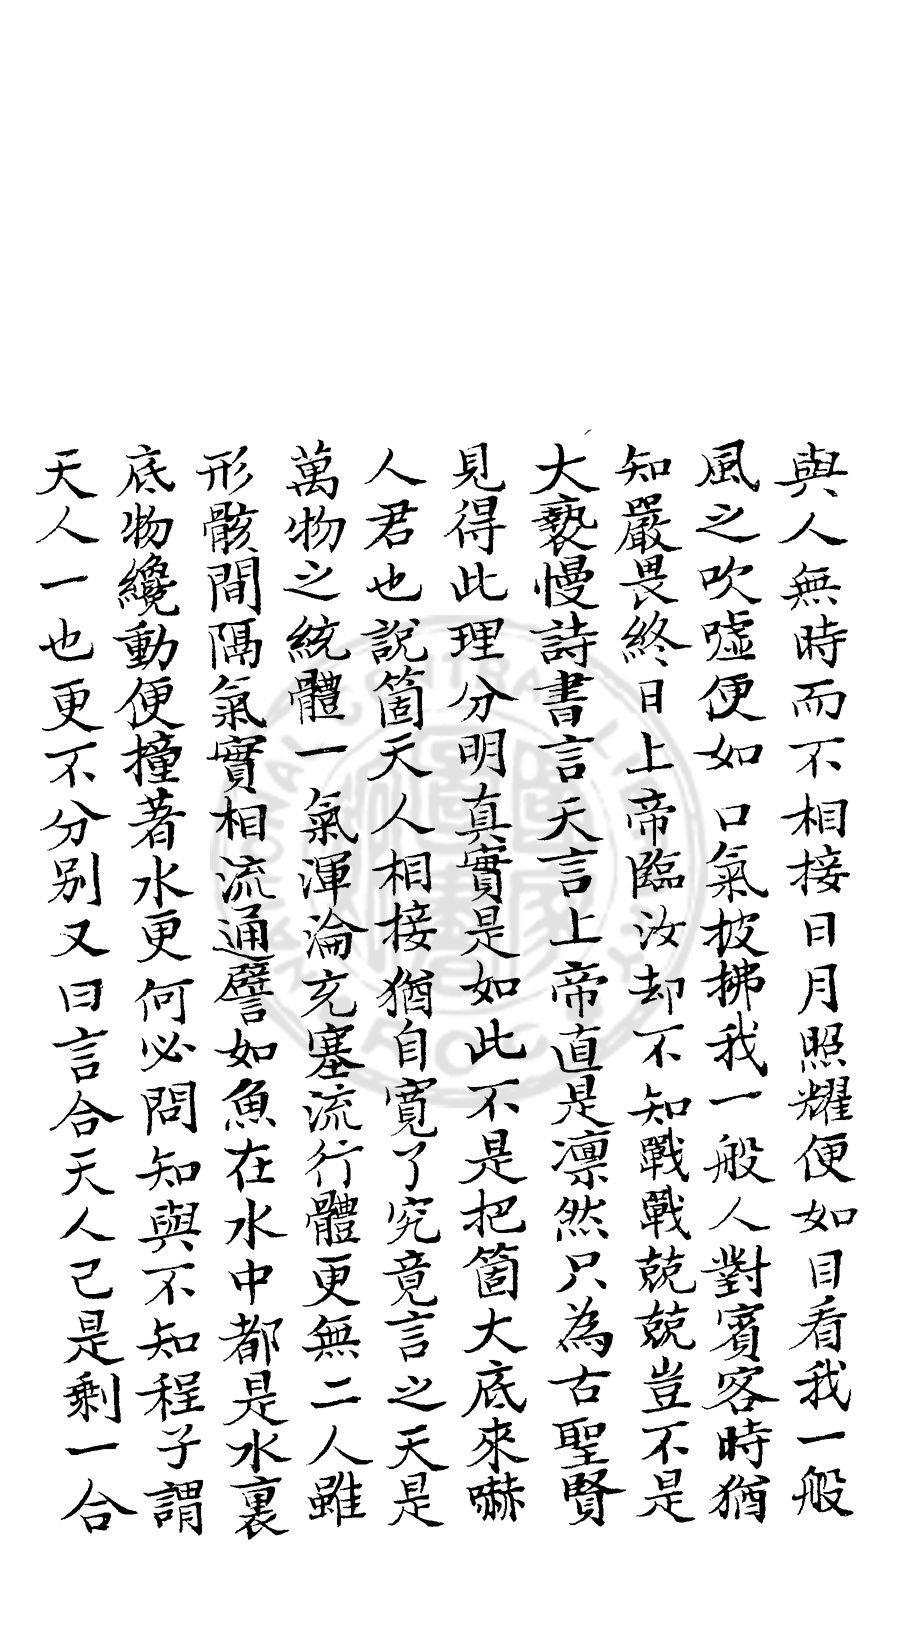 與人無時而不相接日月照耀便如目看我一般
風之吹噓便如口氣披拂我一般人對賓客時猶
知嚴畏終日上帝臨汝却不知戰戰兢兢豈不是
大褻慢詩書言天言上帝直是凛然只為古聖賢
見得此理分明真實是如此不是把箇大底來嚇
人君也說箇天人相接猶自寬了究竟言之天是
萬物之統體一氣渾淪充塞流行體更無二人雖
形骸間隔氣實相流通譬如魚在水中都是水裏
底物纔動便撞著水更何必問知與不知程子謂
天人一也更不分别又曰言合天人已是剩一合